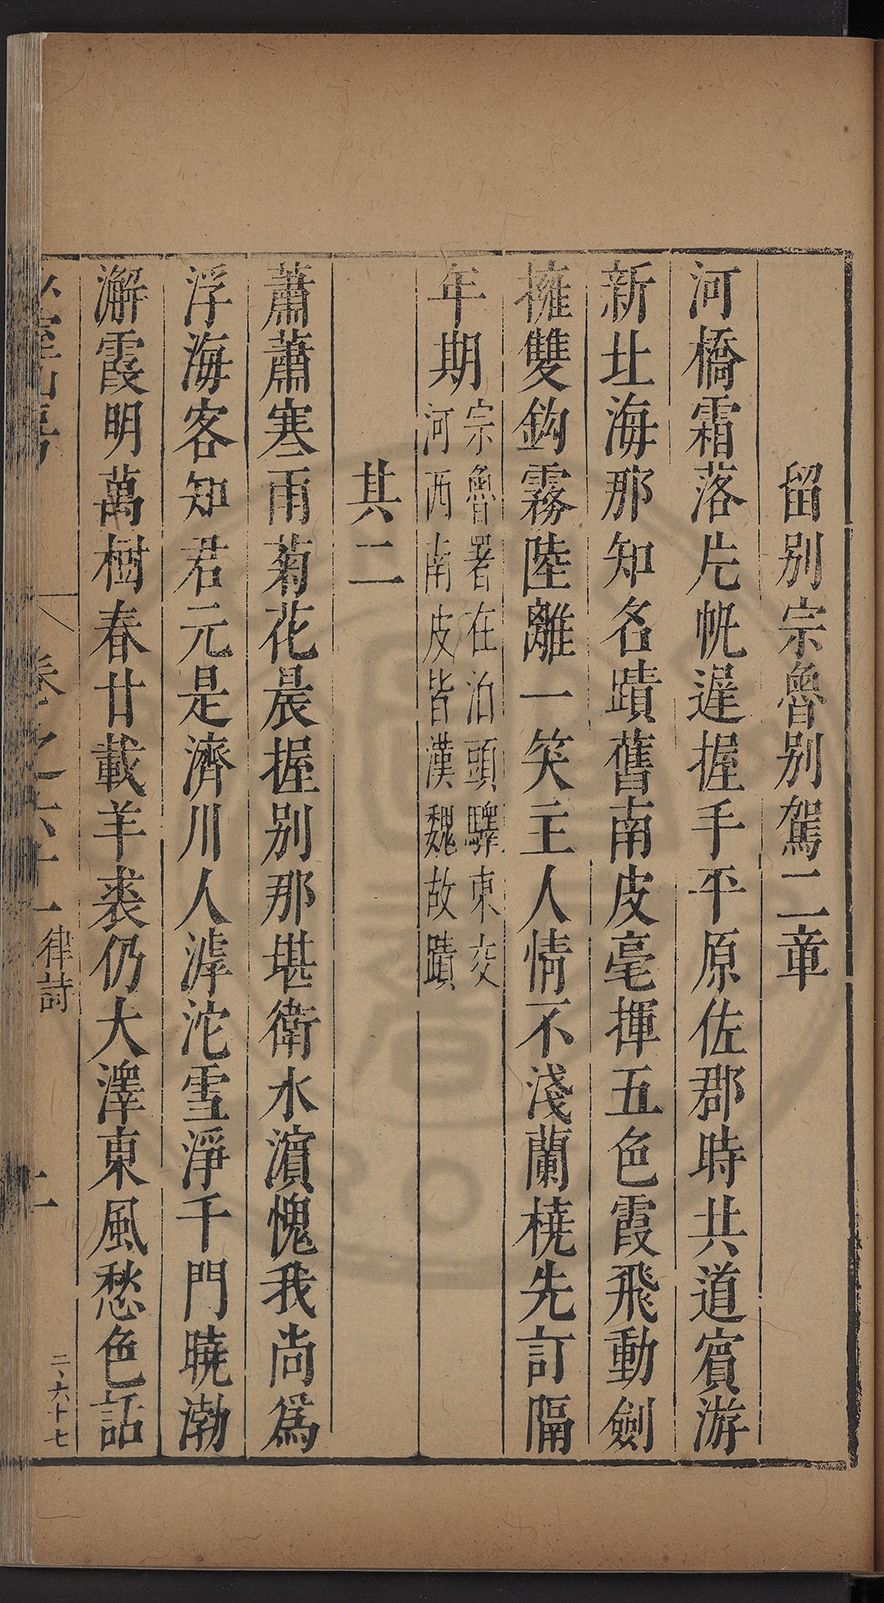 留别宗魯别駕二章
河橋霜落片帆遲握手平原佐郡時共道賓游
新北海那知名蹟舊南皮毫揮五色霞飛動劍
擁雙鈎霧陸離一笑主人情不淺蘭橈先訂隔
年期
宗魯署在泊頭驛東交
河西南皮皆漢魏故蹟
其二
蕭蕭寒雨菊花晨握别那堪衛水濵愧我尚爲
浮海客知君元是濟川人滹沱雪淨千門曉渤
澥霞明萬樹春廿載羊裘仍大澤東風愁色話
卷之六十一
律詩
二、六十七